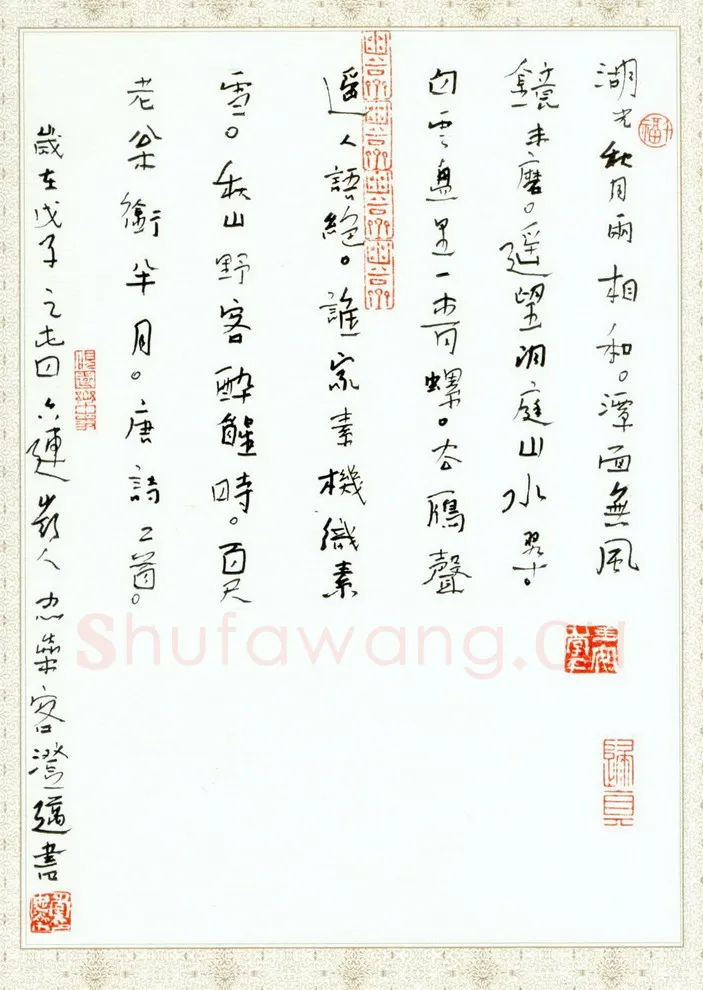 湖光秋月兩相和。潭面無風
鏡未磨。遥望洞庭山水翠。
白雲盤里一青螺。去鴈聲
遥人語絕。誰家素機織素
雪。秋山野客醉醒時。百尺
老枀銜半月。唐詩二首。
歲在戊子之日六連嶺人榮客澄邁書
福
歸真
Shufawang.cn